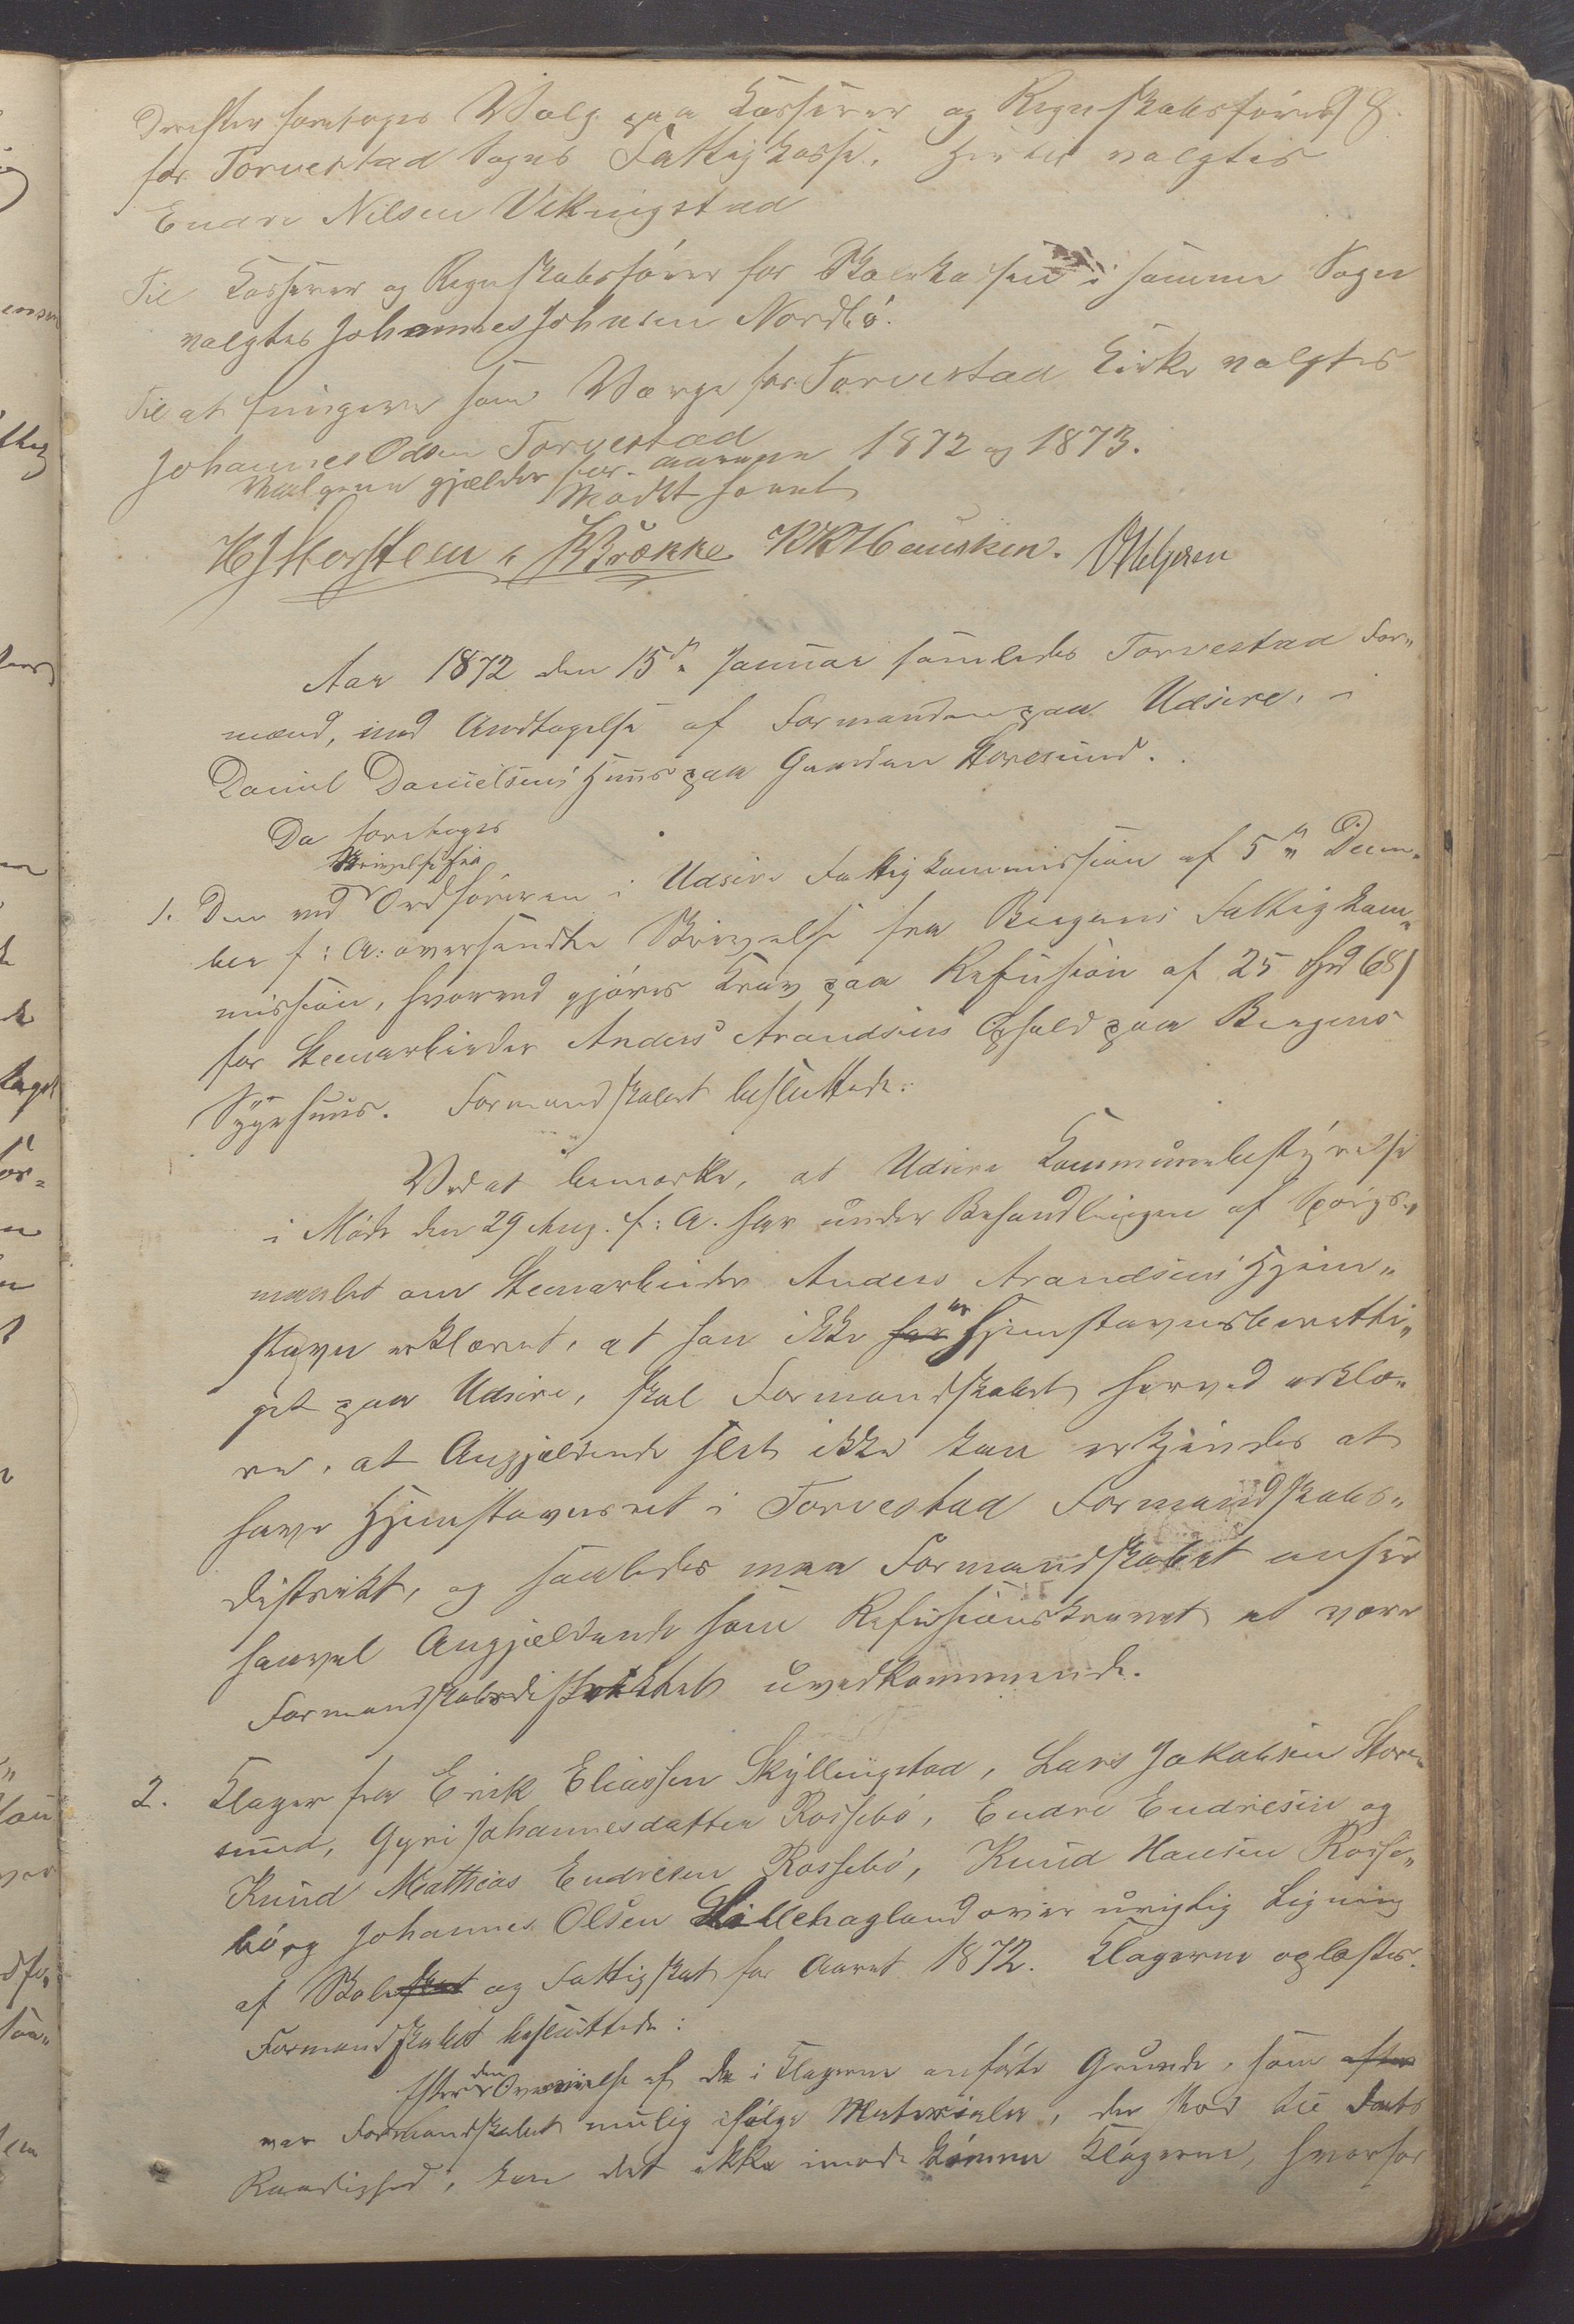 Derefter foretoges Valg paa Kasserer og Regnskabsfører
for Torvestad Sogns Fattigkasse. Hertil valgtes
Endre Nilsen Vikingstad
Til Kasserer og Regnskabsfører for Skolekassen i samme Sogn
valgtes Johannes Johnsen Nordbö.
Til at fungere som Værge for Torvestad Kirke valgtes
Johannes Odsen Torvestad
Valgene gjælder for Aarene 1872 og 1873.
Mødet hævet
H J Storstein B Brække K K Hausken. O Helgesen
Aar 1872 den 15de Januar samledes Torvestad For„
mænd, med Undtagelse af Formanden paa Udsire, i
Daniel Danielsens Huus paa Gaarden Storesund.
Da foretoges
Skrivelse fra
1. Den ved Ordføreren i Udsire Fattigkommission af 5te Decem„
ber f: A: oversendte Skrivelse fra Bergens Fattigkom„
mission, hvorved gjöres Krav paa Refusion af 25 Spd 68 s
for Steenarbeider Anders Arandsens Ophold paa Bergens
Sygehuus. Formandskabet besluttede:
Ved at bemærke, at Udsire Kommunebestyrelse
i Møde den 29 Aug. f: A. har under Behandlingen af Spørgs„
maalet om Steenarbeider Anders Arandsens Hjem„
stavn erklæret, at han ikke har er Hjemstavnsberetti„
get paa Udsire, skal Formandskabet herved erklæ„
re, at Angjældende slet ikke kan erkjendes at
have Hjemstavnsret i Torvestad Formandskabs„
distrikt, og saaledes maa Formandskabet anse
saavel Angjældende som Refusionskravet at være
Formandskabsdistriktet uvedkommende.
2. Klager fra Erik Eliassen Skyllingstad, Lars Jakobsen Store„
sund, Gyri Johannesdatter Rossebö, Endre Endresen og
Knud Matthias Endresen Rossebö, Knud Hansen Rosse„
bö og Johannes Olsen Lillehagland over urigtig Ligning
af Skoleskat og Fattigskat for Aaret 1872. Klagerne oplæstes.
Formandskabet besluttede:
Efter den Overveielse af de i Klagerne anförte Grunde, som efter
var Formandskabet mulig ifölge Materialer, der stod til dets
Raadighed, kan det ikke imødekomme Klagerne, hvorfor